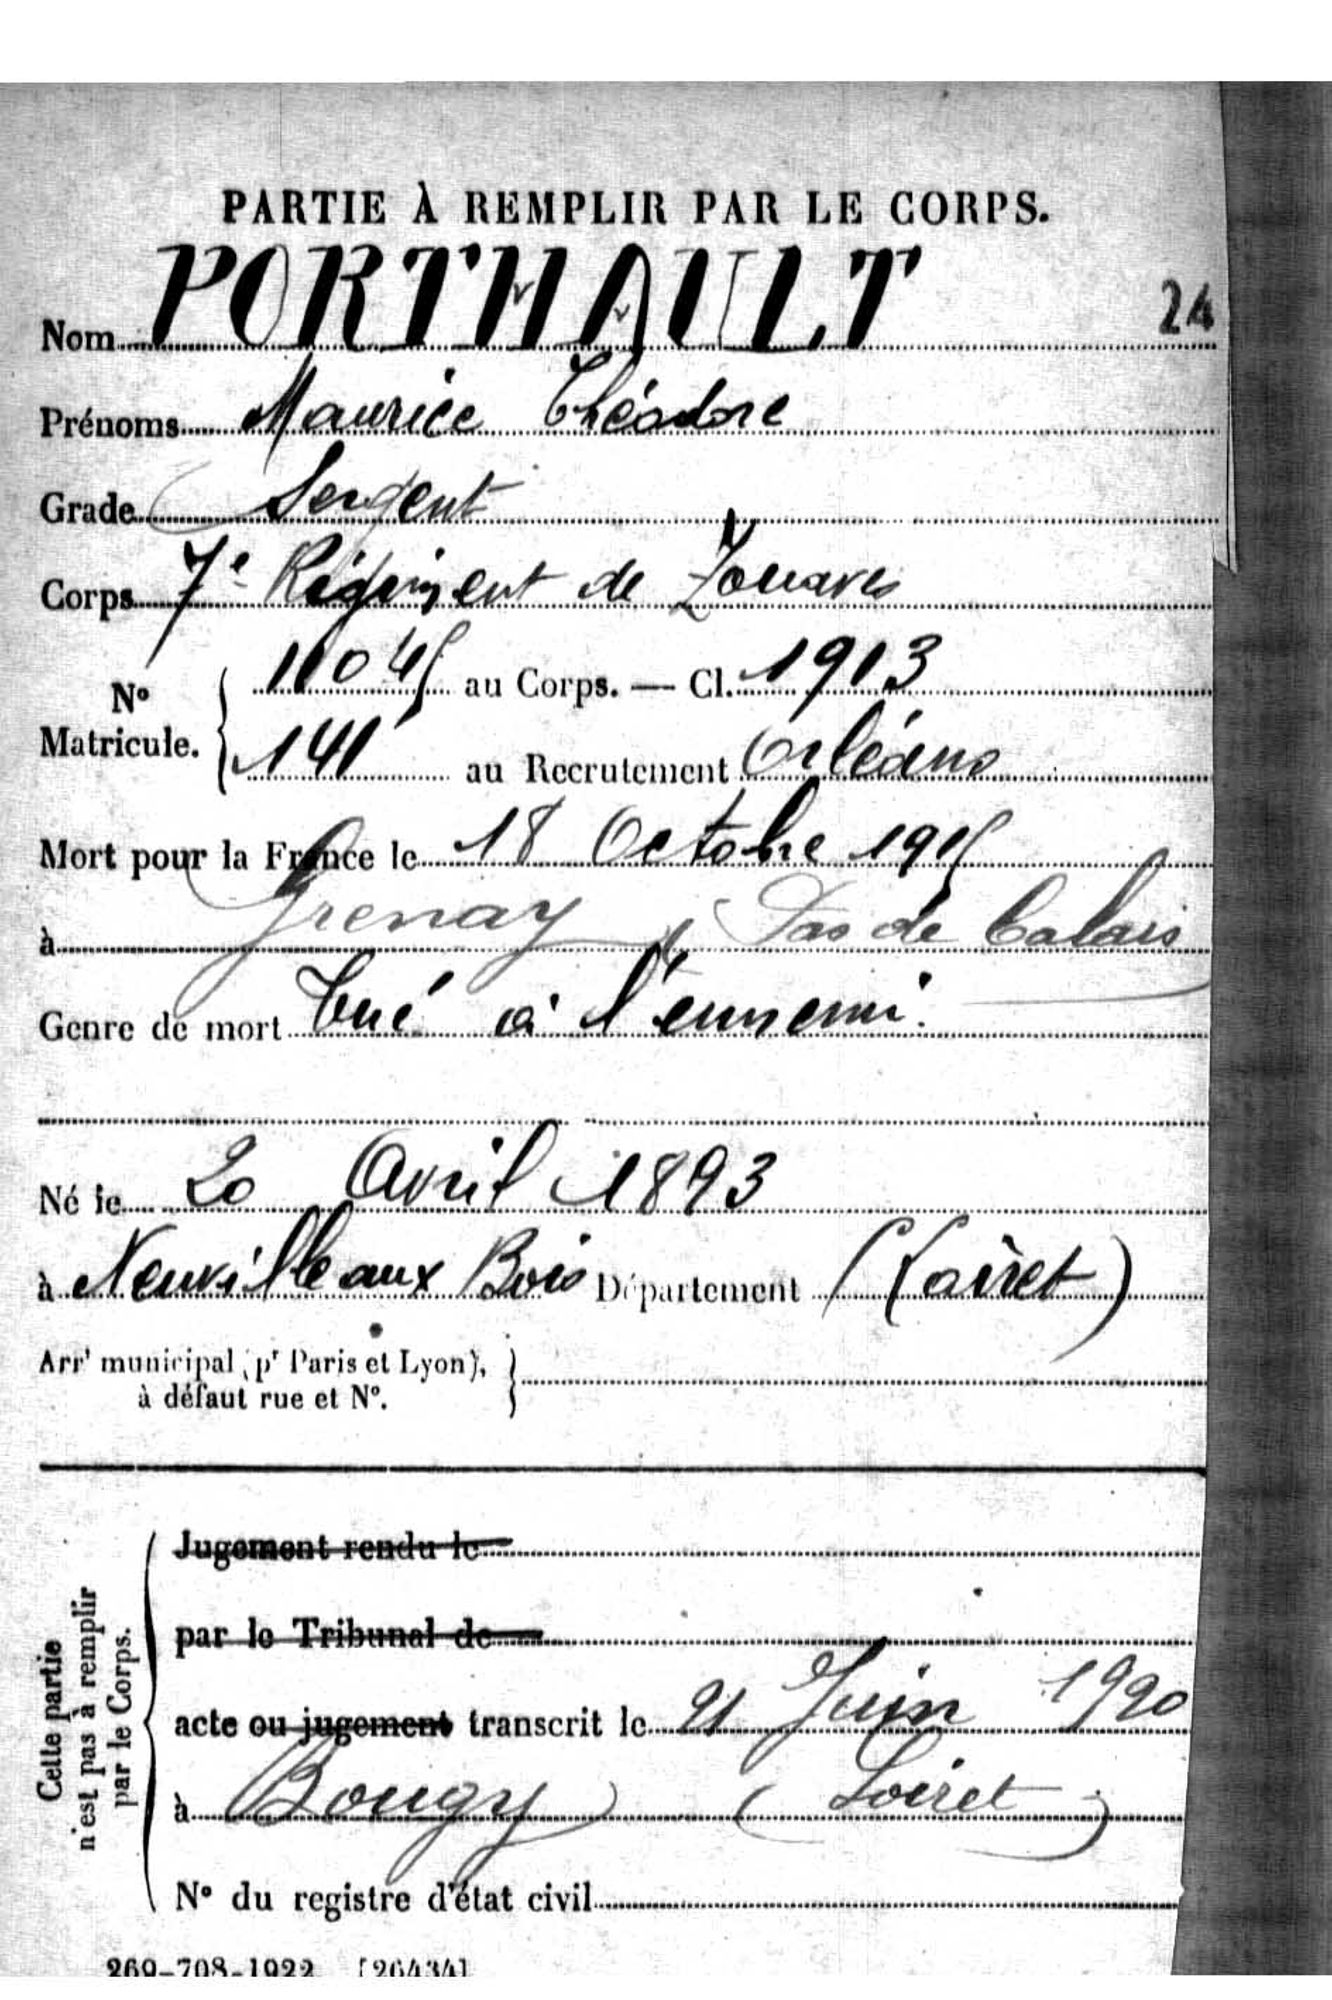 PARTIE À REMPLIR PAR LE CORPS.
Nom PORTHAULT 24
Prénoms Maurice Théodore
Grade Sergent
Corps 7e Régiment de Zouaves
11045 au Corps. — Cl. 1913
N° Matricule.
141 au Recrutement Orléans
Mort pour la France le 18 Octobre 1915
à Grenay Pas de Calais
Genre de mort Tué à l'ennemi.
Né le 20 Avril 1893
à Neuville aux Bois Département (Loiret)
Arrt municipal (pr Paris et Lyon),
à défaut rue et N°.
Jugement rendu le
par le Tribunal de
acte ou jugement transcrit le 21 Juin 1920
à Bougy (Loiret)
N° du registre d'état civil
Cette partie
n'est pas à remplir
par le Corps.
269-708-1922 [26434]